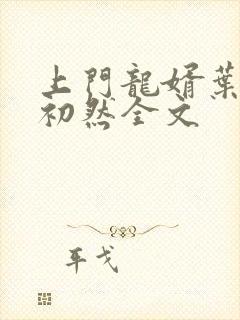 上門龍婿葉
初然全文
年戈